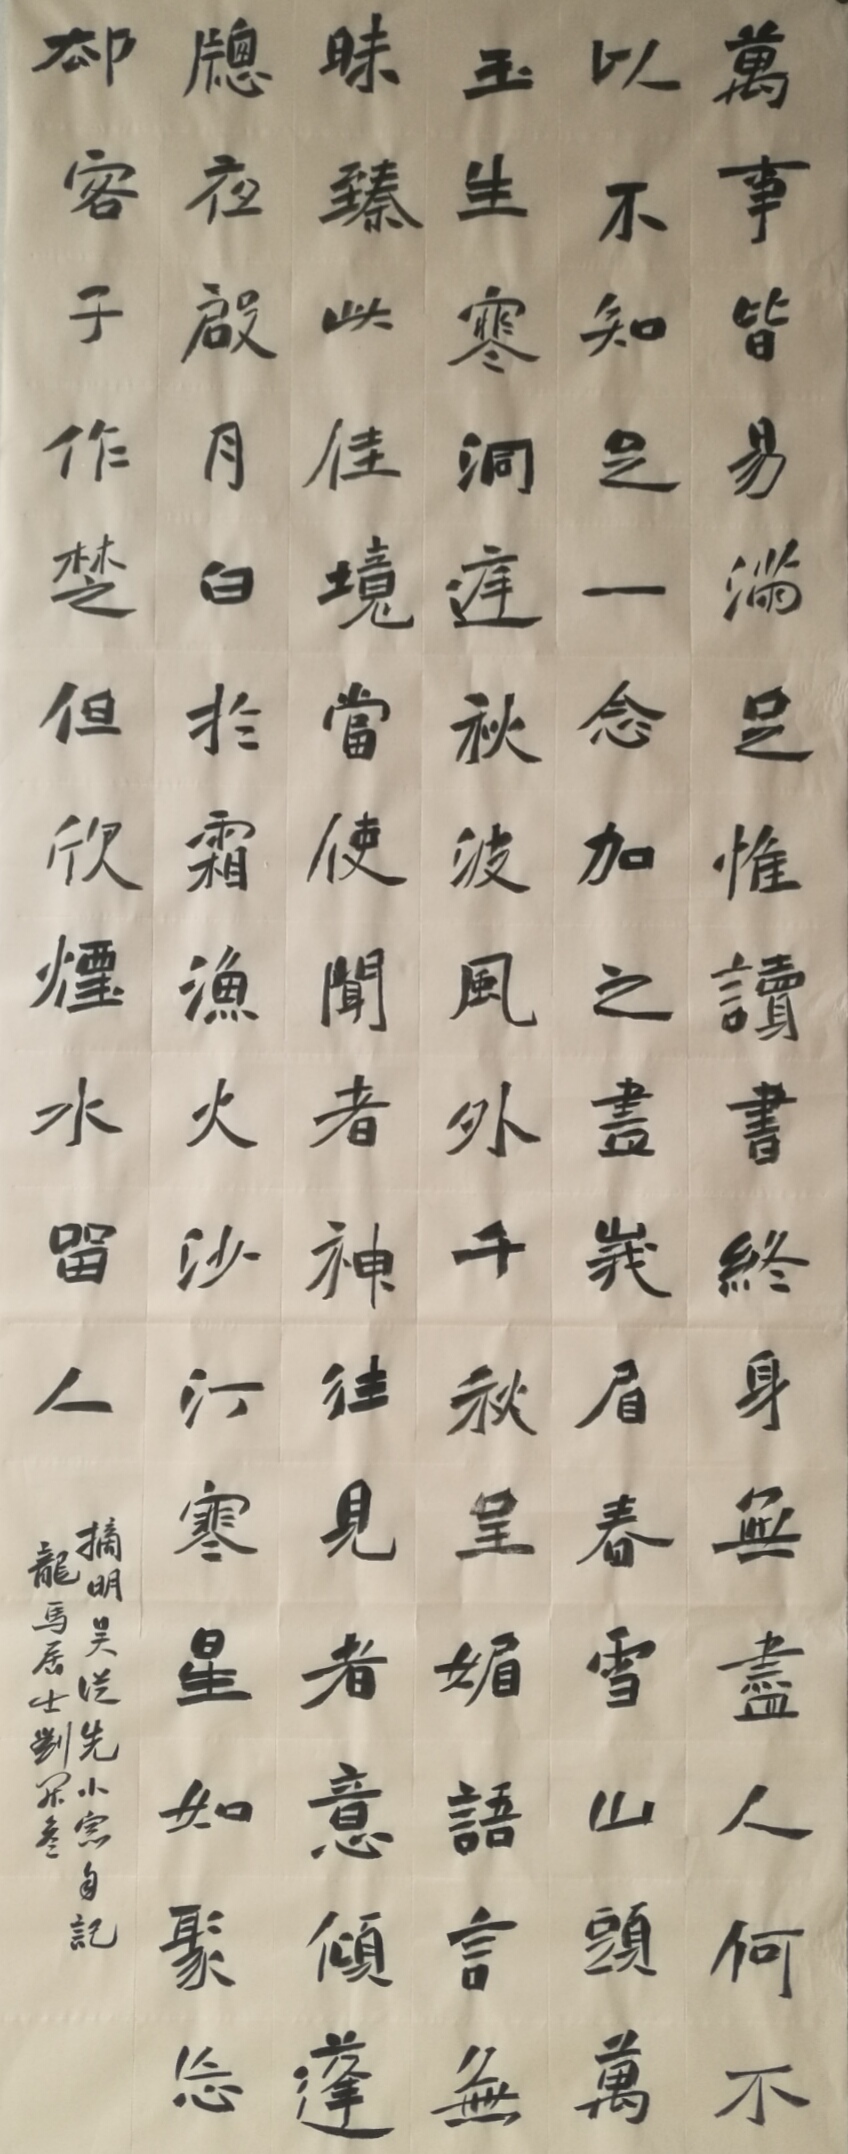 萬事皆易滿足惟讀書終身無盡人何不
以不知足一念加之盡峩眉春雪山頭萬
玉生寒洞庭秋波風外千秋呈媚語言無
昧臻此佳境當使聞者神往見者意傾蓬
牕夜啟月白於霜漁火沙汀寒星如聚忘
却客子作楚但欣煙水留人
摘明吴從先小窓自記
龍馬居士劉